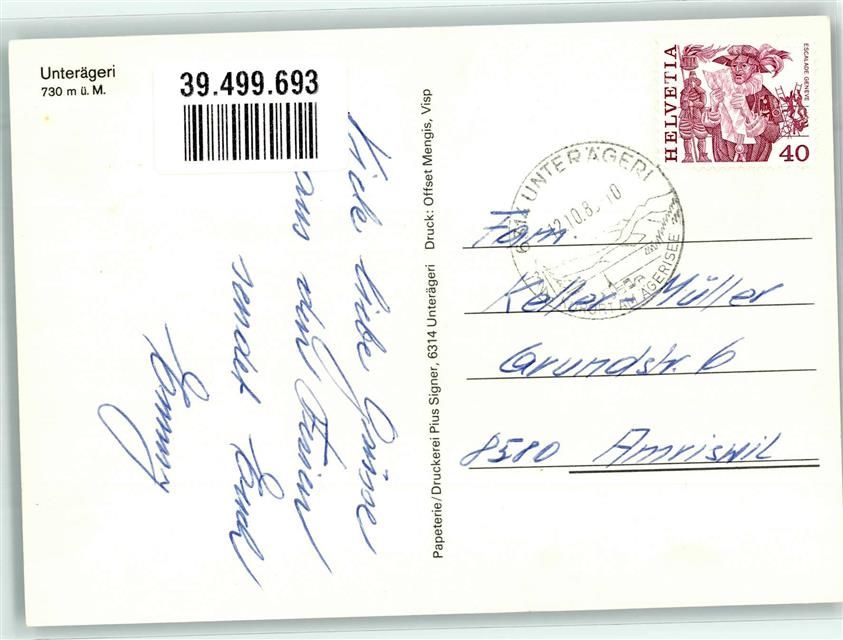 Unterägeri
730 m ü. M.
39.499.693
Viele liebe Grüsse
aus den Ferien
sendet Euch
Emmy
Papeterie/Druckerei Pius Signer, 6314 Unterägeri Druck: Offset Mengis, Visp
HELVETIA
ESCALADE GENÈVE
40
6314 UNTERÄGERI
12.10.8
KURORT AM ÄGERISEE
Fam.
Keller-Müller
Grundstr. 6
8580 Amriswil